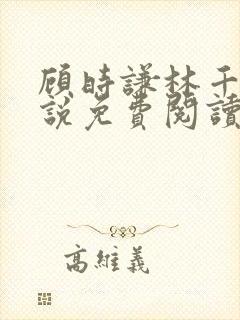 顾時謙林千
說免費閱讀
高維義